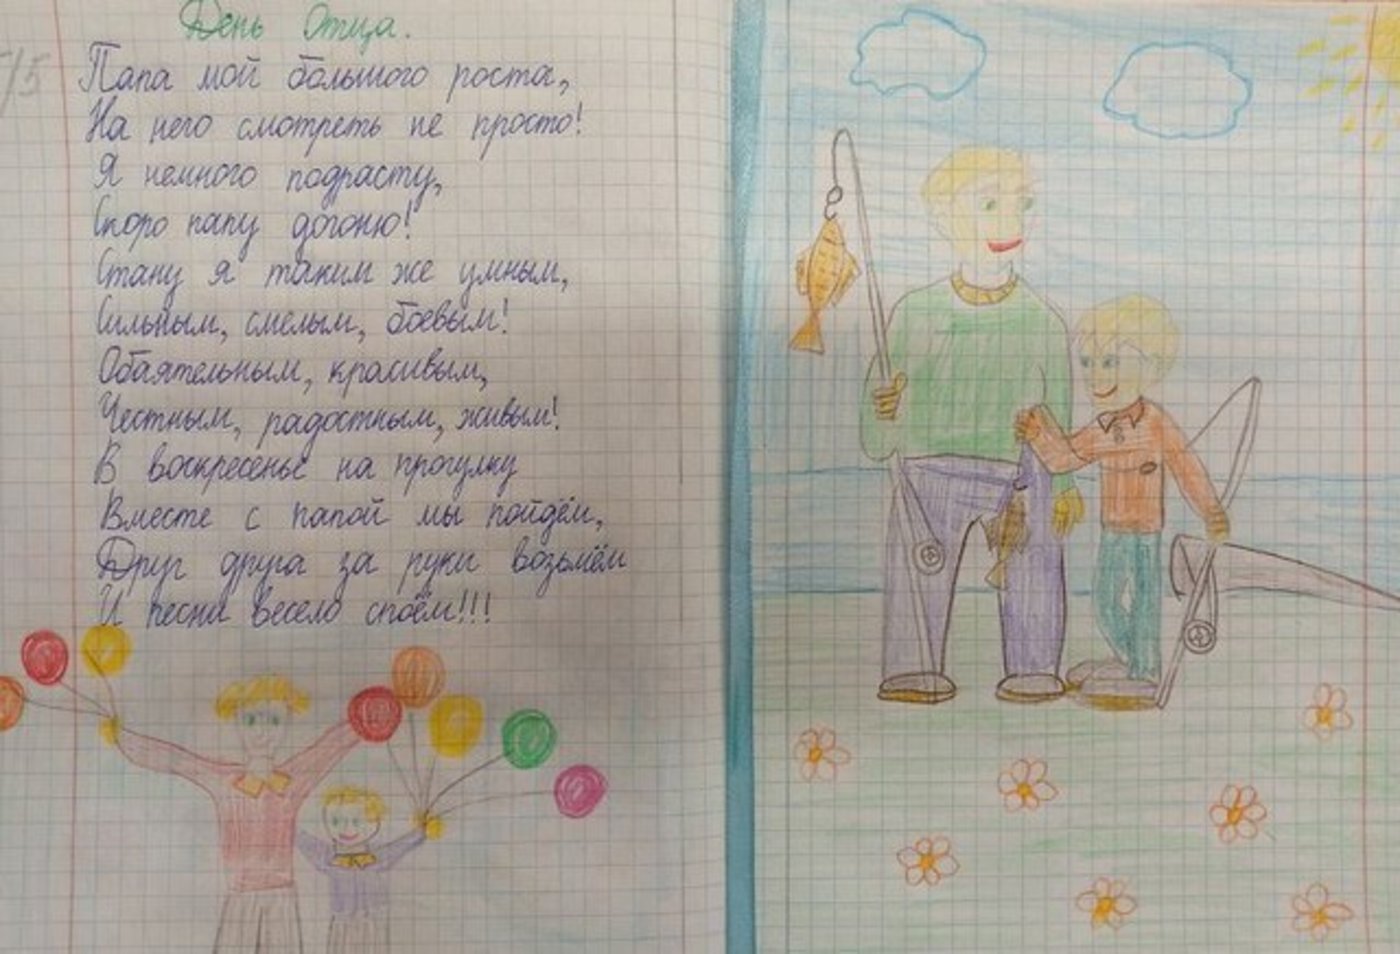 День Отца.
Папа мой большого роста,
На него смотреть не просто!
Я немного подрасту,
Скоро папу догоню!
Стану я таким же умным,
Сильным, смелым, боевым!
Обаятельным, красивым,
Честным, радостным, живым!
В воскресенье на прогулку
Вместе с папой мы пойдём,
Друг друга за руки возьмём
И песни весело споём!!!